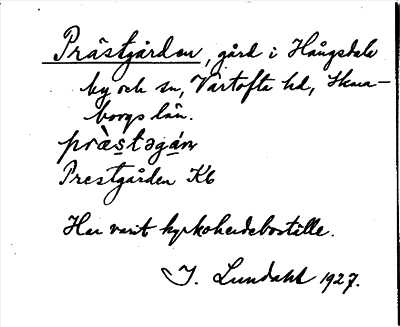 Prästgården, gård i Hångsdala
by och sn, Vartofte hd, Skara-
borgs län.
pràstəgán
Prestgården Kb
Har varit kyrkoherdeboställe.
I. Lundahl 1927.